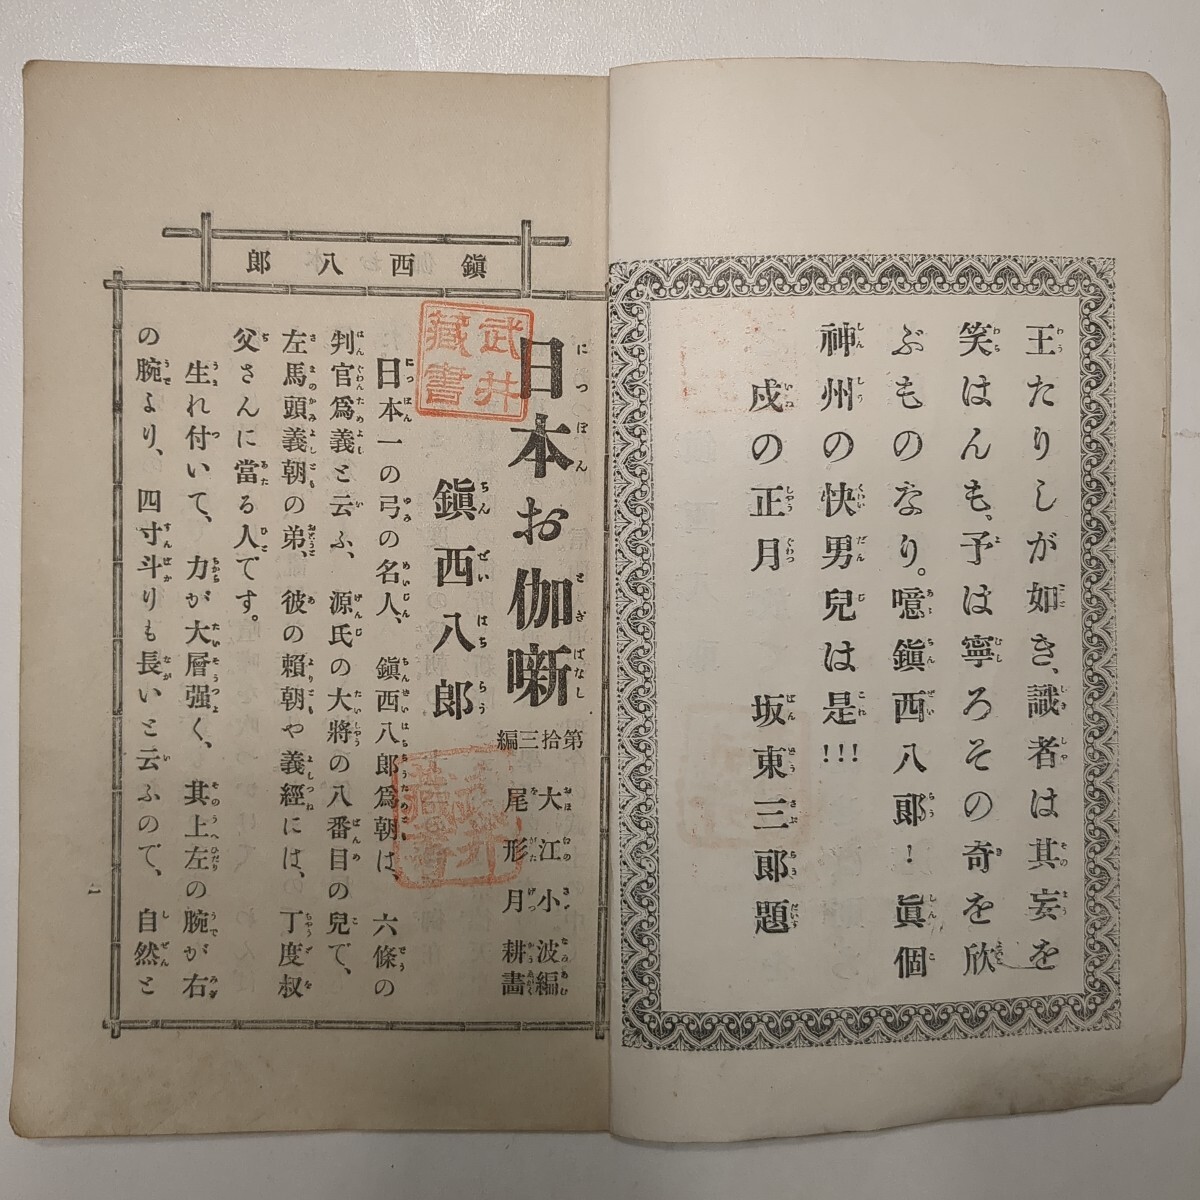 王たりしが如き、識者は其妄を
笑はんも、予は寧ろその奇を欣
ぶものなり。噫鎭西八郎！眞個
神州の快男兒は是!!!
戌の正月　坂東三郎題
鎭西八郎
武井藏書
日本お伽噺
第拾三編
大江小波編
尾形月耕畵
鎭西八郎
日本一の弓の名人、鎭西八郎爲朝は、六條の
判官爲義と云ふ、源氏の大將の八番目の兒で、
左馬頭義朝の弟、彼の賴朝や義經には、丁度叔
父さんに當る人です。
生れ付いて、力が大層强く、其上左の腕が右
の腕より、四寸斗りも長いと云ふので、自然と
一